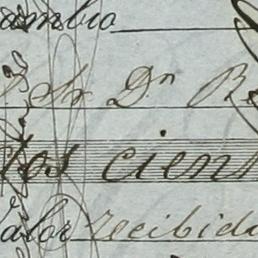 ambio
Sr Dn Re
tos cient
alor recibido